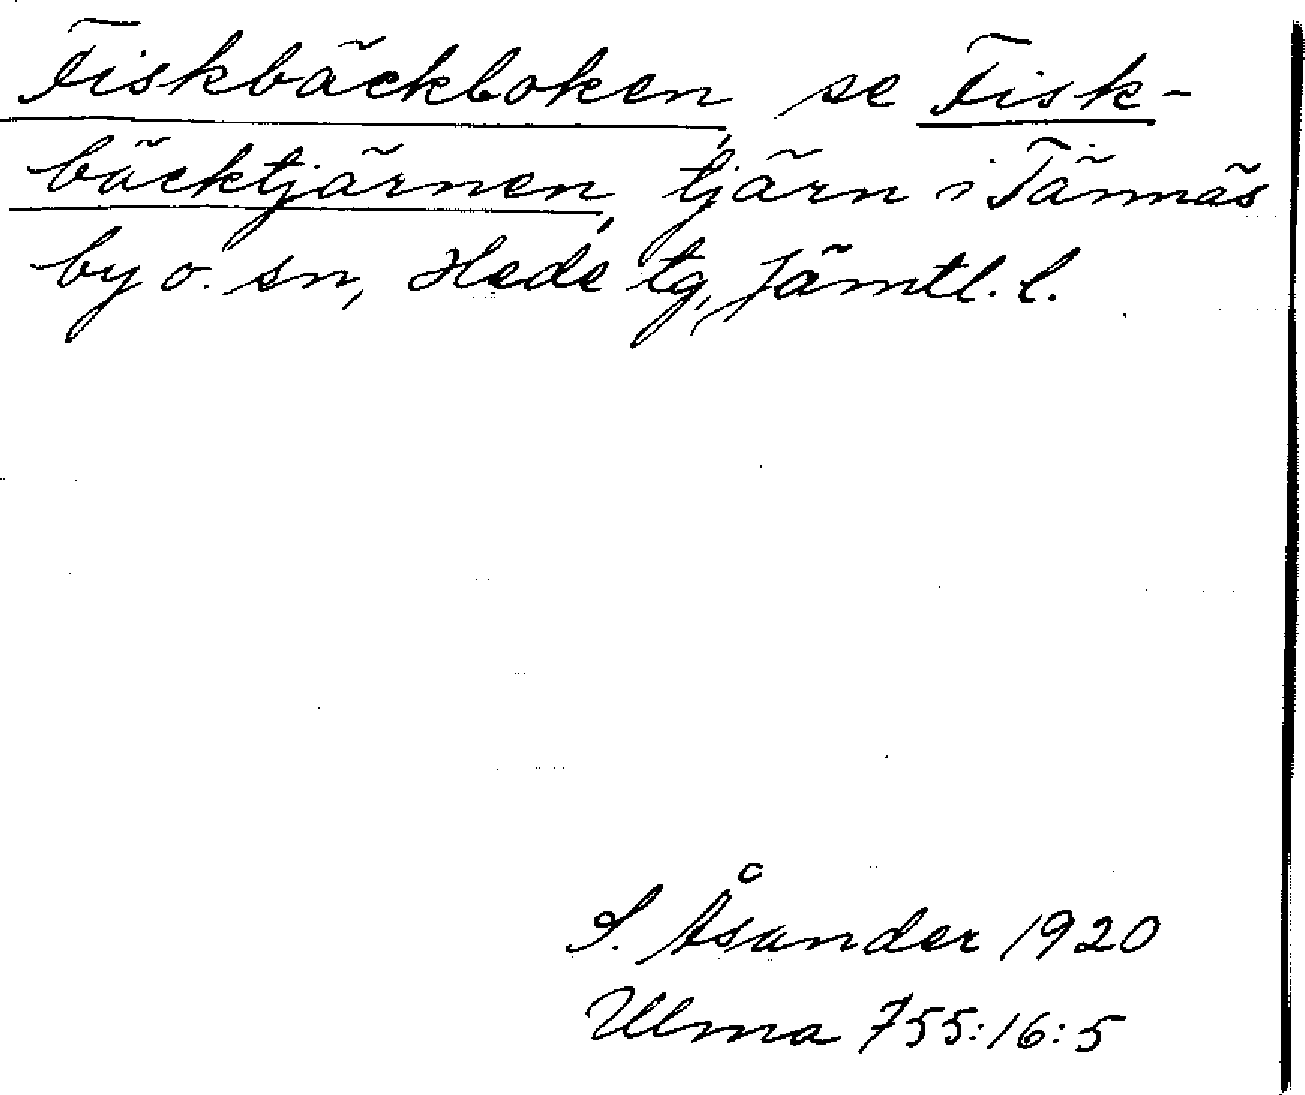 Fiskbäckboken, se Fisk-
bäcktjärnen, tjärn i Tännäs
by o. sn, Hede tg, Jämtl. l.
S. Åsander 1920
Ulma 755:16:5